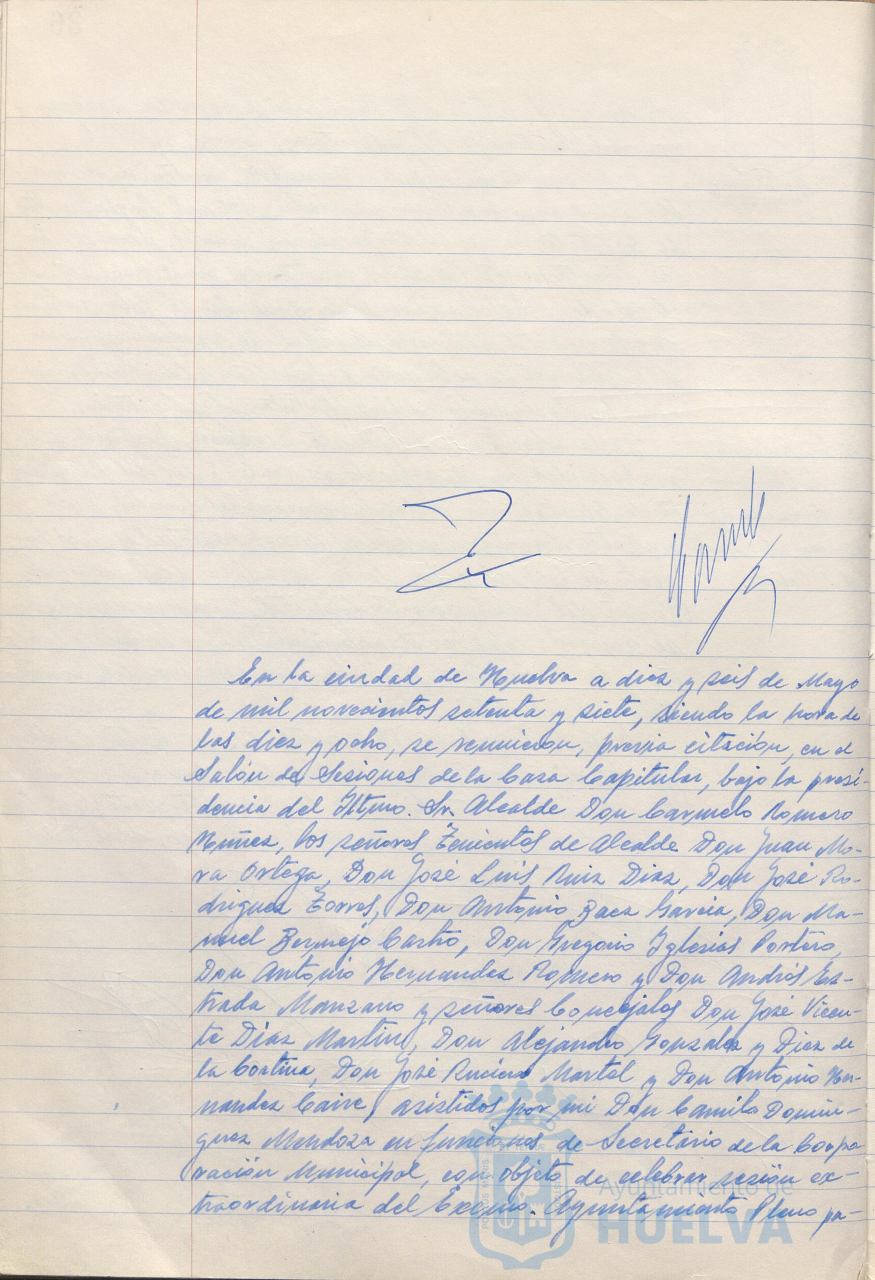 En la ciudad de Huelva a diez y seis de Mayo
de mil novecientos setenta y siete, siendo la hora de
las diez y ocho, se reunieron, previa citación, en el
Salón de Sesiones de la Casa Capitular, bajo la presi-
dencia del Iltmo. Sr. Alcalde Don Carmelo Romero
Nuñez, los señores Tenientes de Alcalde Don Juan Mo-
ra Ortega, Don José Luis Ruiz Diaz, Don José Ro-
driguez Torres, Don Antonio Baez Garcia, Don Ma-
nuel Bermejo Castro, Don Gregorio Iglesias Portero,
Don Antonio Hernandez Romero y Don Andrés Es-
trada Manzano y señores Concejales Don José Vicen-
te Díaz Martin, Don Alejandro Gonzalez y Diez de
la Cortina, Don José Martel y Don Antonio Her-
nandez Caire, asistidos por mi Don Camilo Domin-
guez Mendoza en funciones de Secretario de la Corpo
ración Municipal, con objeto de celebrar sesión ex-
traordinaria del Excmo. Ayuntamiento Pleno pa-
Ayuntamiento de
HUELVA